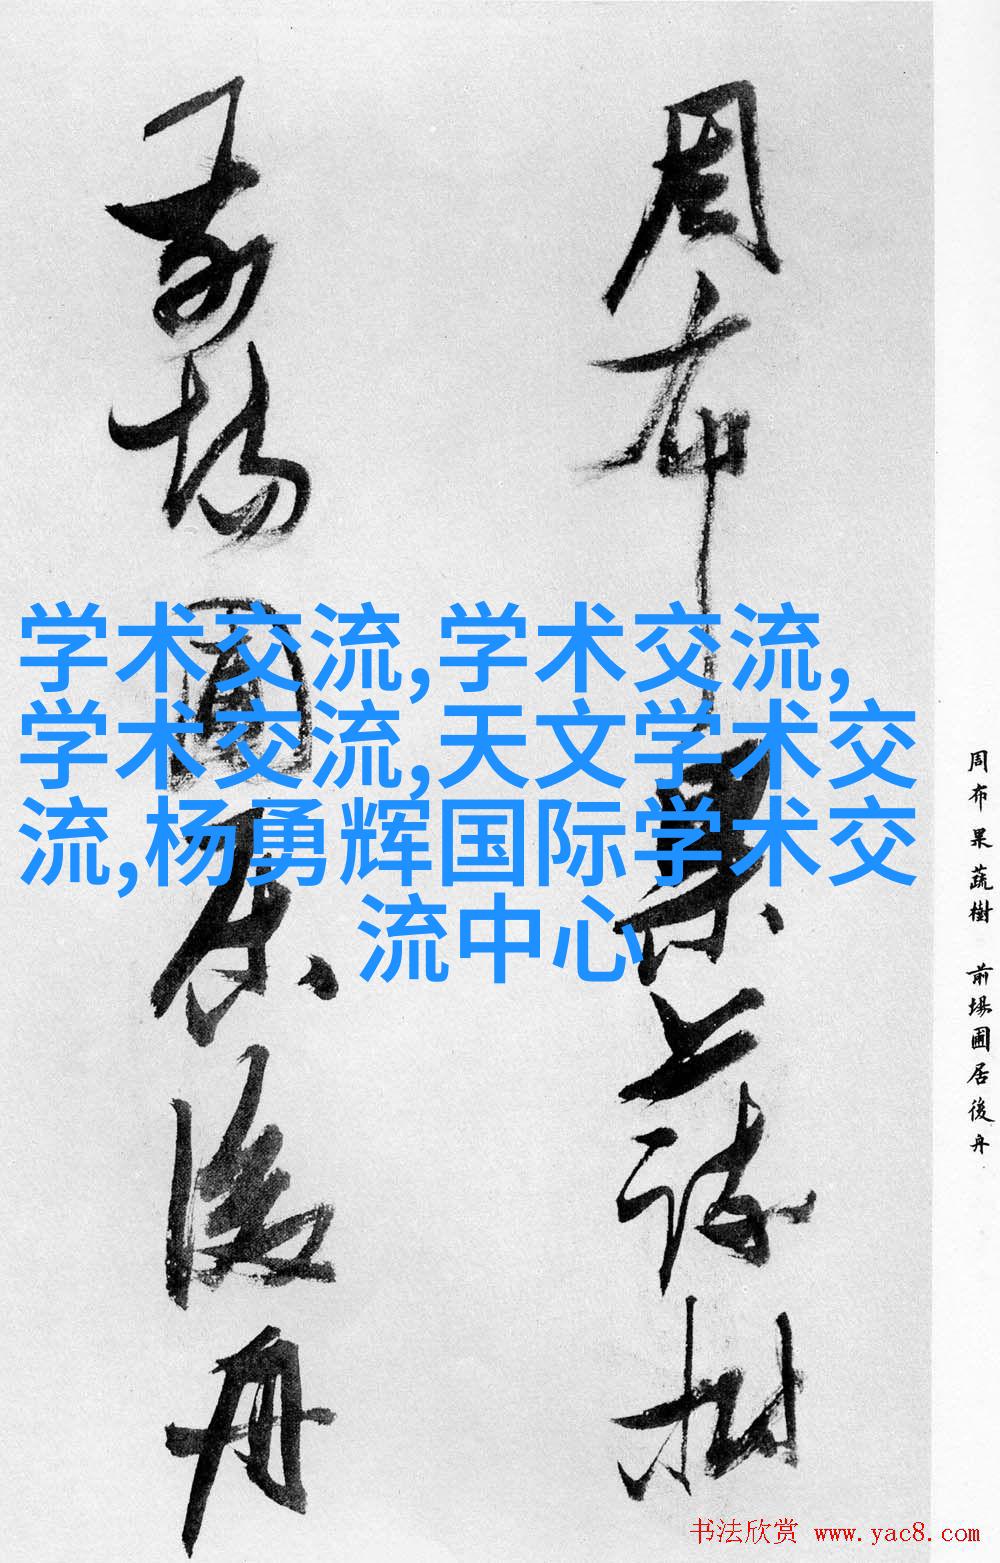 周布果蔬樹
前場圃居後舟
学术交流,学术交流,
学术交流,天文学术交
流,杨勇辉国际学术交
流中心
周布果蔬樹 前場圃居後舟
书法欣赏 www.yac8.com